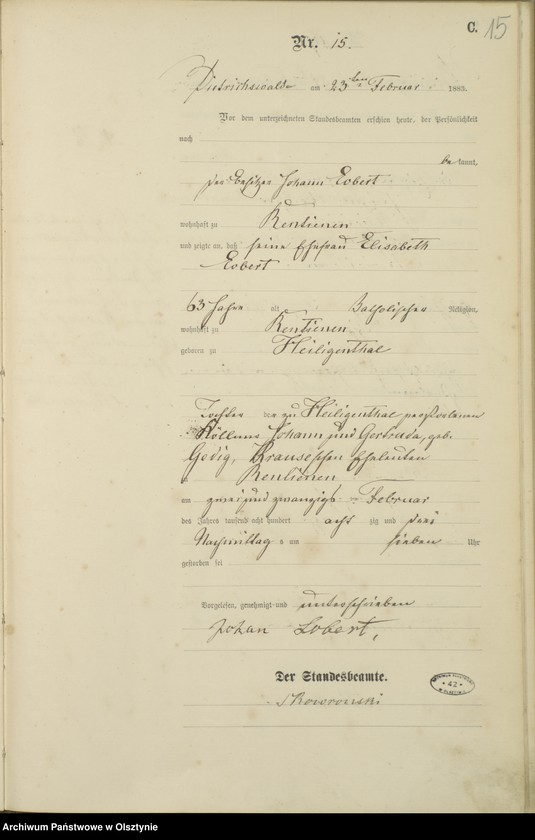 C. 15
Nr. 15.
Dietrichswalde am 23ten Februar 1883.
Vor dem unterzeichneten Standesbeamten erschien heute, der Persönlichkeit
nach
be kannt,
der Besitzer Johann Lobert
wohnhaft zu Rentienen
und zeigte an, daß seine Ehefrau Elisabeth
Lobert
63 Jahre alt Katholischer Religion,
wohnhaft zu Rentienen
geboren zu Heiligenthal
Tochter der zu Heiligenthal verstorbenen
Johann und Gertruda, geb.
Krauseschen Eheleuten
Rentienen
am zwei und zwanzigs Februar
des Jahres tausend acht hundert acht zig und drei
Nachmittag s um sieben Uhr
gestorben sei
Vorgelesen, genehmigt und unterschrieben
Johan Lobert,
Der Standesbeamte.
Skowronski
42
Archiwum Państwowe w Olsztynie